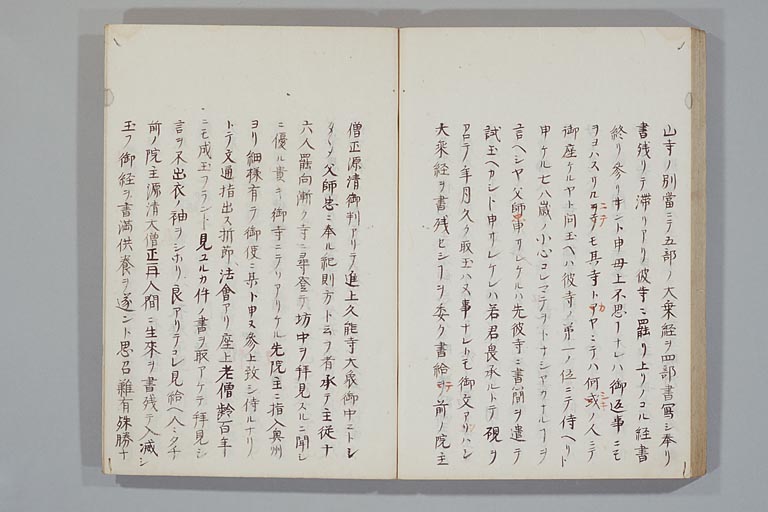 山寺ノ別當ニテ五部ノ大乗経ヲ四部書寫シ奉リ
書残リテ滞リアリ彼寺ニ罷リ上リノコル経書
終リ参リナント申母上不思ナレハ御返事ニモ
ヲヨハスリルニテモ其寺トカヤニテハ何或ノ人ニテ
御座ケルヤト問玉ヘハ彼寺ノ第一ノ位ニテ侍ヘリト
申ケル七八歳ノ小心コレマテヲトナシヤカナル
言ヘシヤ父師申サレケルハ先彼寺ニ書簡ヲ遣テ
試玉ヘカシト申サレケレハ若君畏承ルトテ硯ヲ
アロテ年月久ク取玉ハヌ事ナレトモ御文アリハン
大乗経ヲ書残セシヲ委ク書給テ前ノ院主
僧正源清御判アリテ進上久能寺大衆御中ニトシ
タメ父師忠ニ奉ル紀則方ト云フ者承テ主従ナ
六人罷向漸ク寺ニ尋登テ坊中ヲ拜見スルニ聞シ
ニ優ル貴キ御寺ニテソアリケル先院主ニ指入奥州
ヨリ細様有テ御使ニ某ト申ス参上致シ侍ルナリ
トテ文通指出ス折節法會アリ座上老僧齢百年
ニモ成玉フラント見ユルカ件ノ書ヲ取アケテ拜見シ
言ヲ不出衣ノ袖ヲシホリ良アリテコレ見給ヘ人々タチ
前ノ院主源清大僧正再人間ニ生來ヲ書残テ入滅シ
玉フ御経ヲ書満供養ヲ遂ント思召難有殊勝ナ